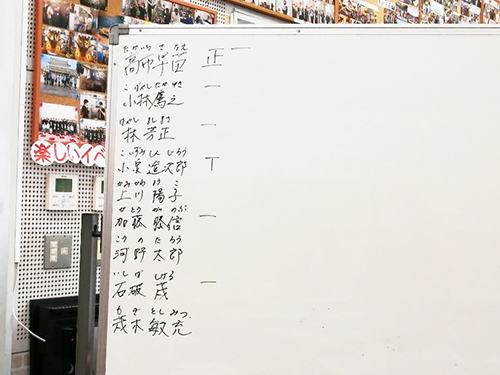 たかいち さなえ
高市早苗 正一
こばやし たかゆき
小林鷹之 一
はやし よしまさ
林芳正 一
こいずみ しんじろう
小泉進次郎 丅
かみかわ ようこ
上川陽子
かとう かつのぶ
加藤勝信 一
こうの たろう
河野太郎
いしば しげる
石破茂 一
もてぎ としみつ
茂木敏充
楽しいイベ